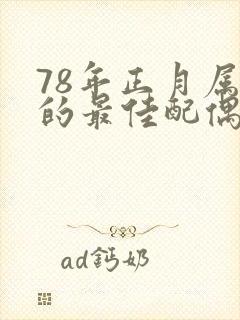 78年正月属
的最佳配偶
ad鈣奶